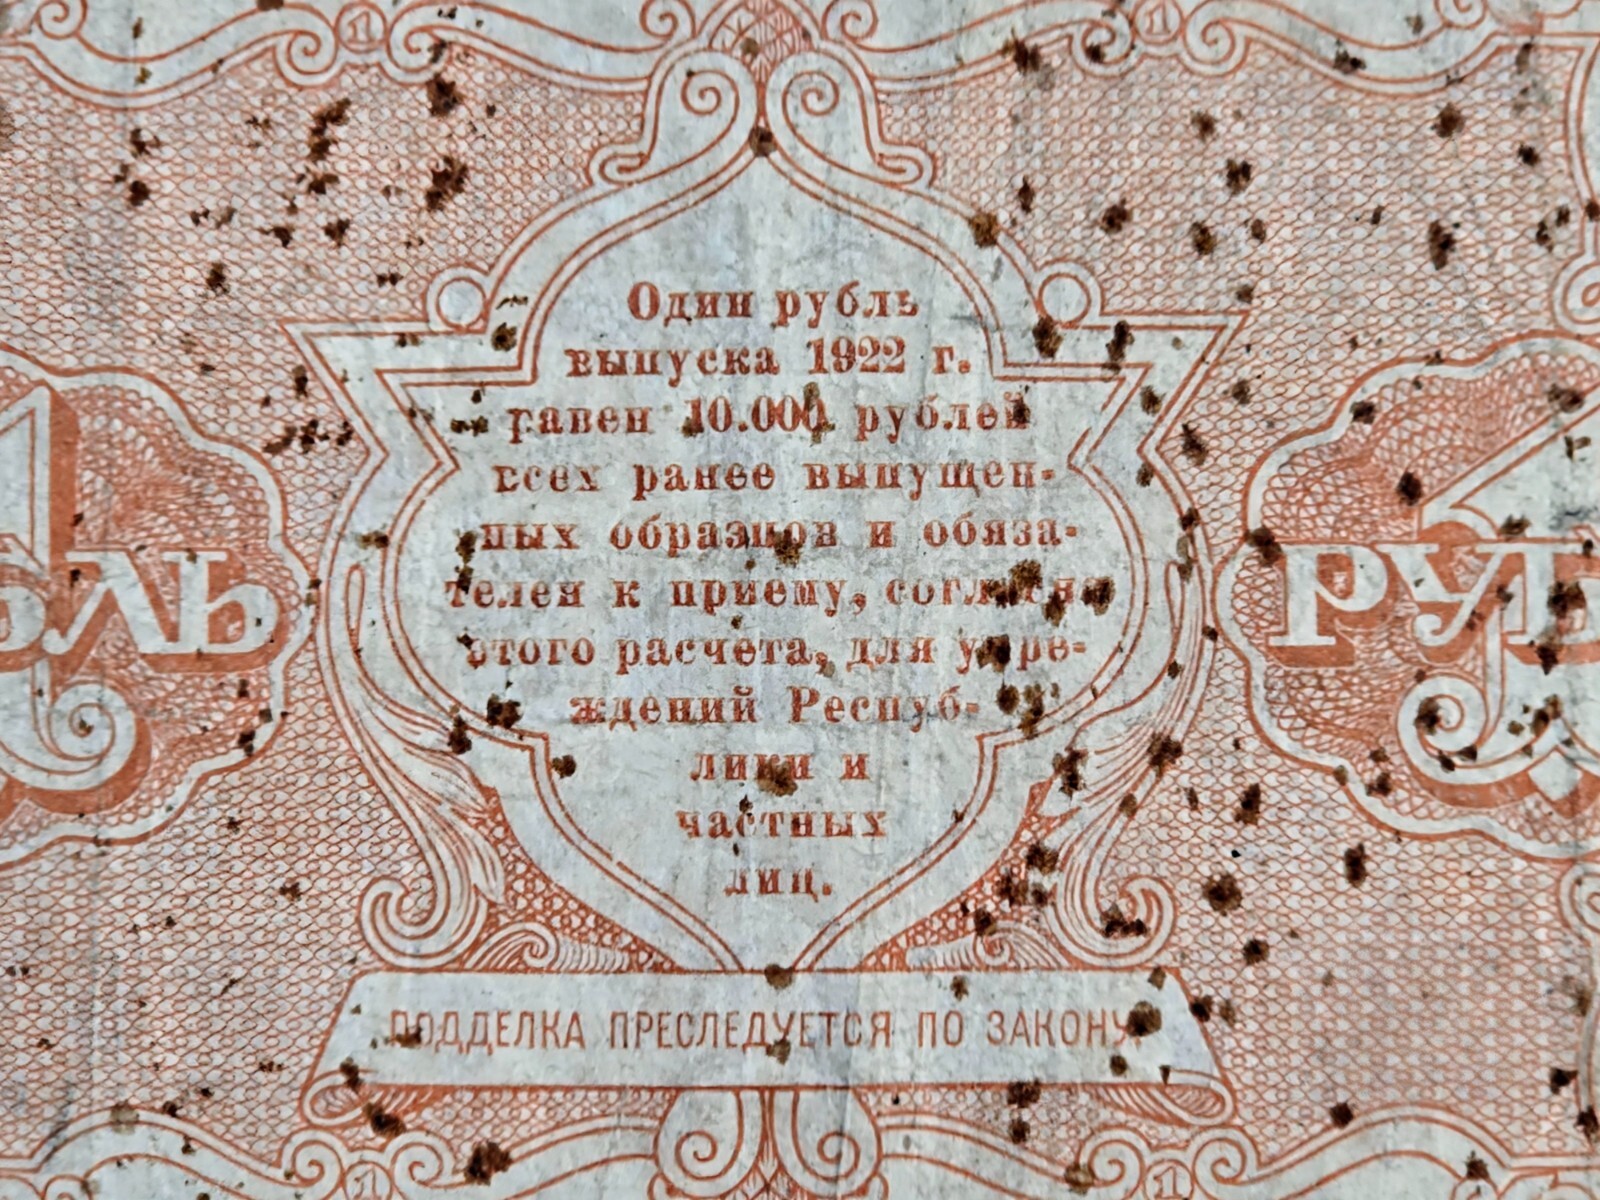 1
1
Один рубль
выпуска 1922 г.
равен 10.000 рублей
всех ранее выпущен-
ных образцов и обяза-
телен к приему, согласно
этого расчета, для учре-
ждений Респуб-
лики и
частных
лиц.
1
БЛЬ
1
РУБ
ПОДДЕЛКА ПРЕСЛЕДУЕТСЯ ПО ЗАКОНУ.
1
1